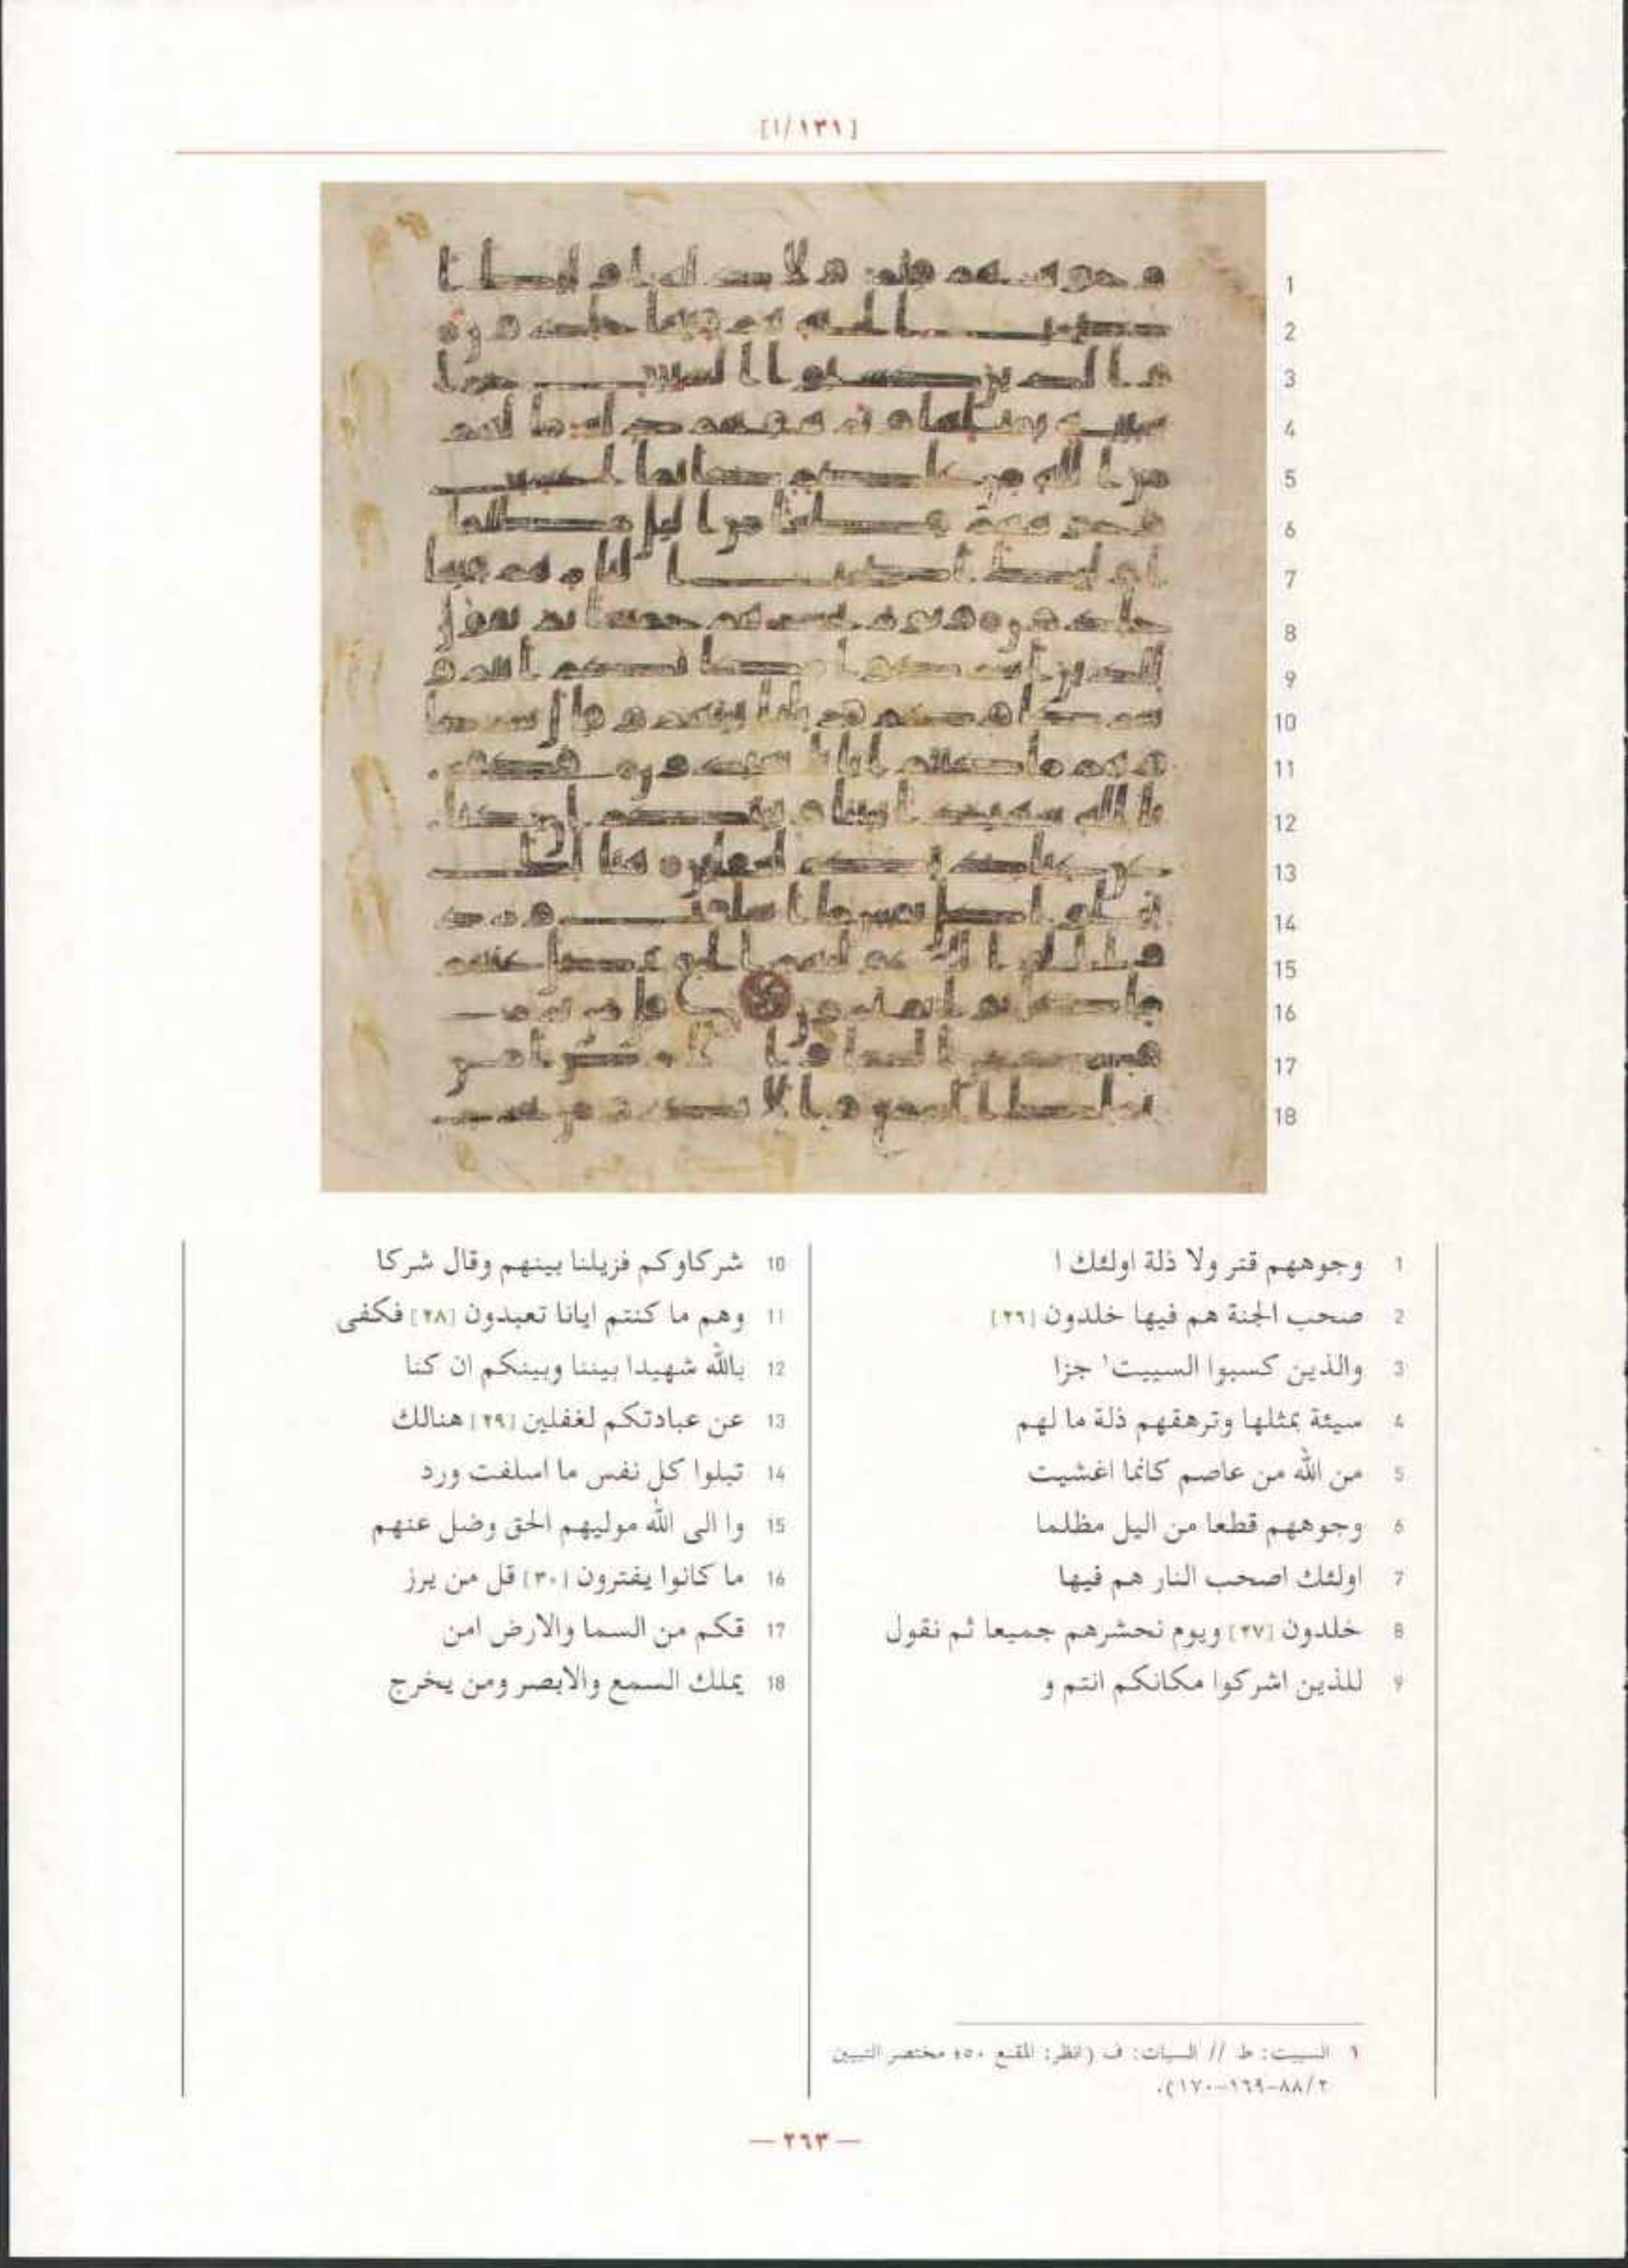 [١٣١/١]
1 وجوههم قتر ولا ذلة اولئك ا
2 صحب الجنة هم فيها خلدون [٢٦]
3 والذين كسبوا السييت١ جزا
4 سيئة بمثلها وترهقهم ذلة ما لهم
5 من الله من عاصم كانما اغشيت
6 وجوههم قطعا من اليل مظلما
7 اولئك اصحب النار هم فيها
8 خلدون [٢٧] ويوم نحشرهم جميعا ثم نقول
9 للذين اشركوا مكانكم انتم و
10 شركاوكم فزيلنا بينهم وقال شركا
11 وهم ما كنتم ايانا تعبدون [٢٨] فكفى
12 بالله شهيدا بيننا وبينكم ان كنا
13 عن عبادتكم لغفلين [٢٩] هنالك
14 تبلوا كل نفس ما اسلفت ورد
15 وا الى الله موليهم الحق وضل عنهم
16 ما كانوا يفترون [٣٠] قل من يرز
17 قكم من السما والارض امن
18 يملك السمع والابصر ومن يخرج
١ السييت: ط // السيات: ف (انظر: المقنع ٤٥٠ مختصر التبيين
٢/٨٨-١٦٩-١٧٠).
— ٢٦٣ —